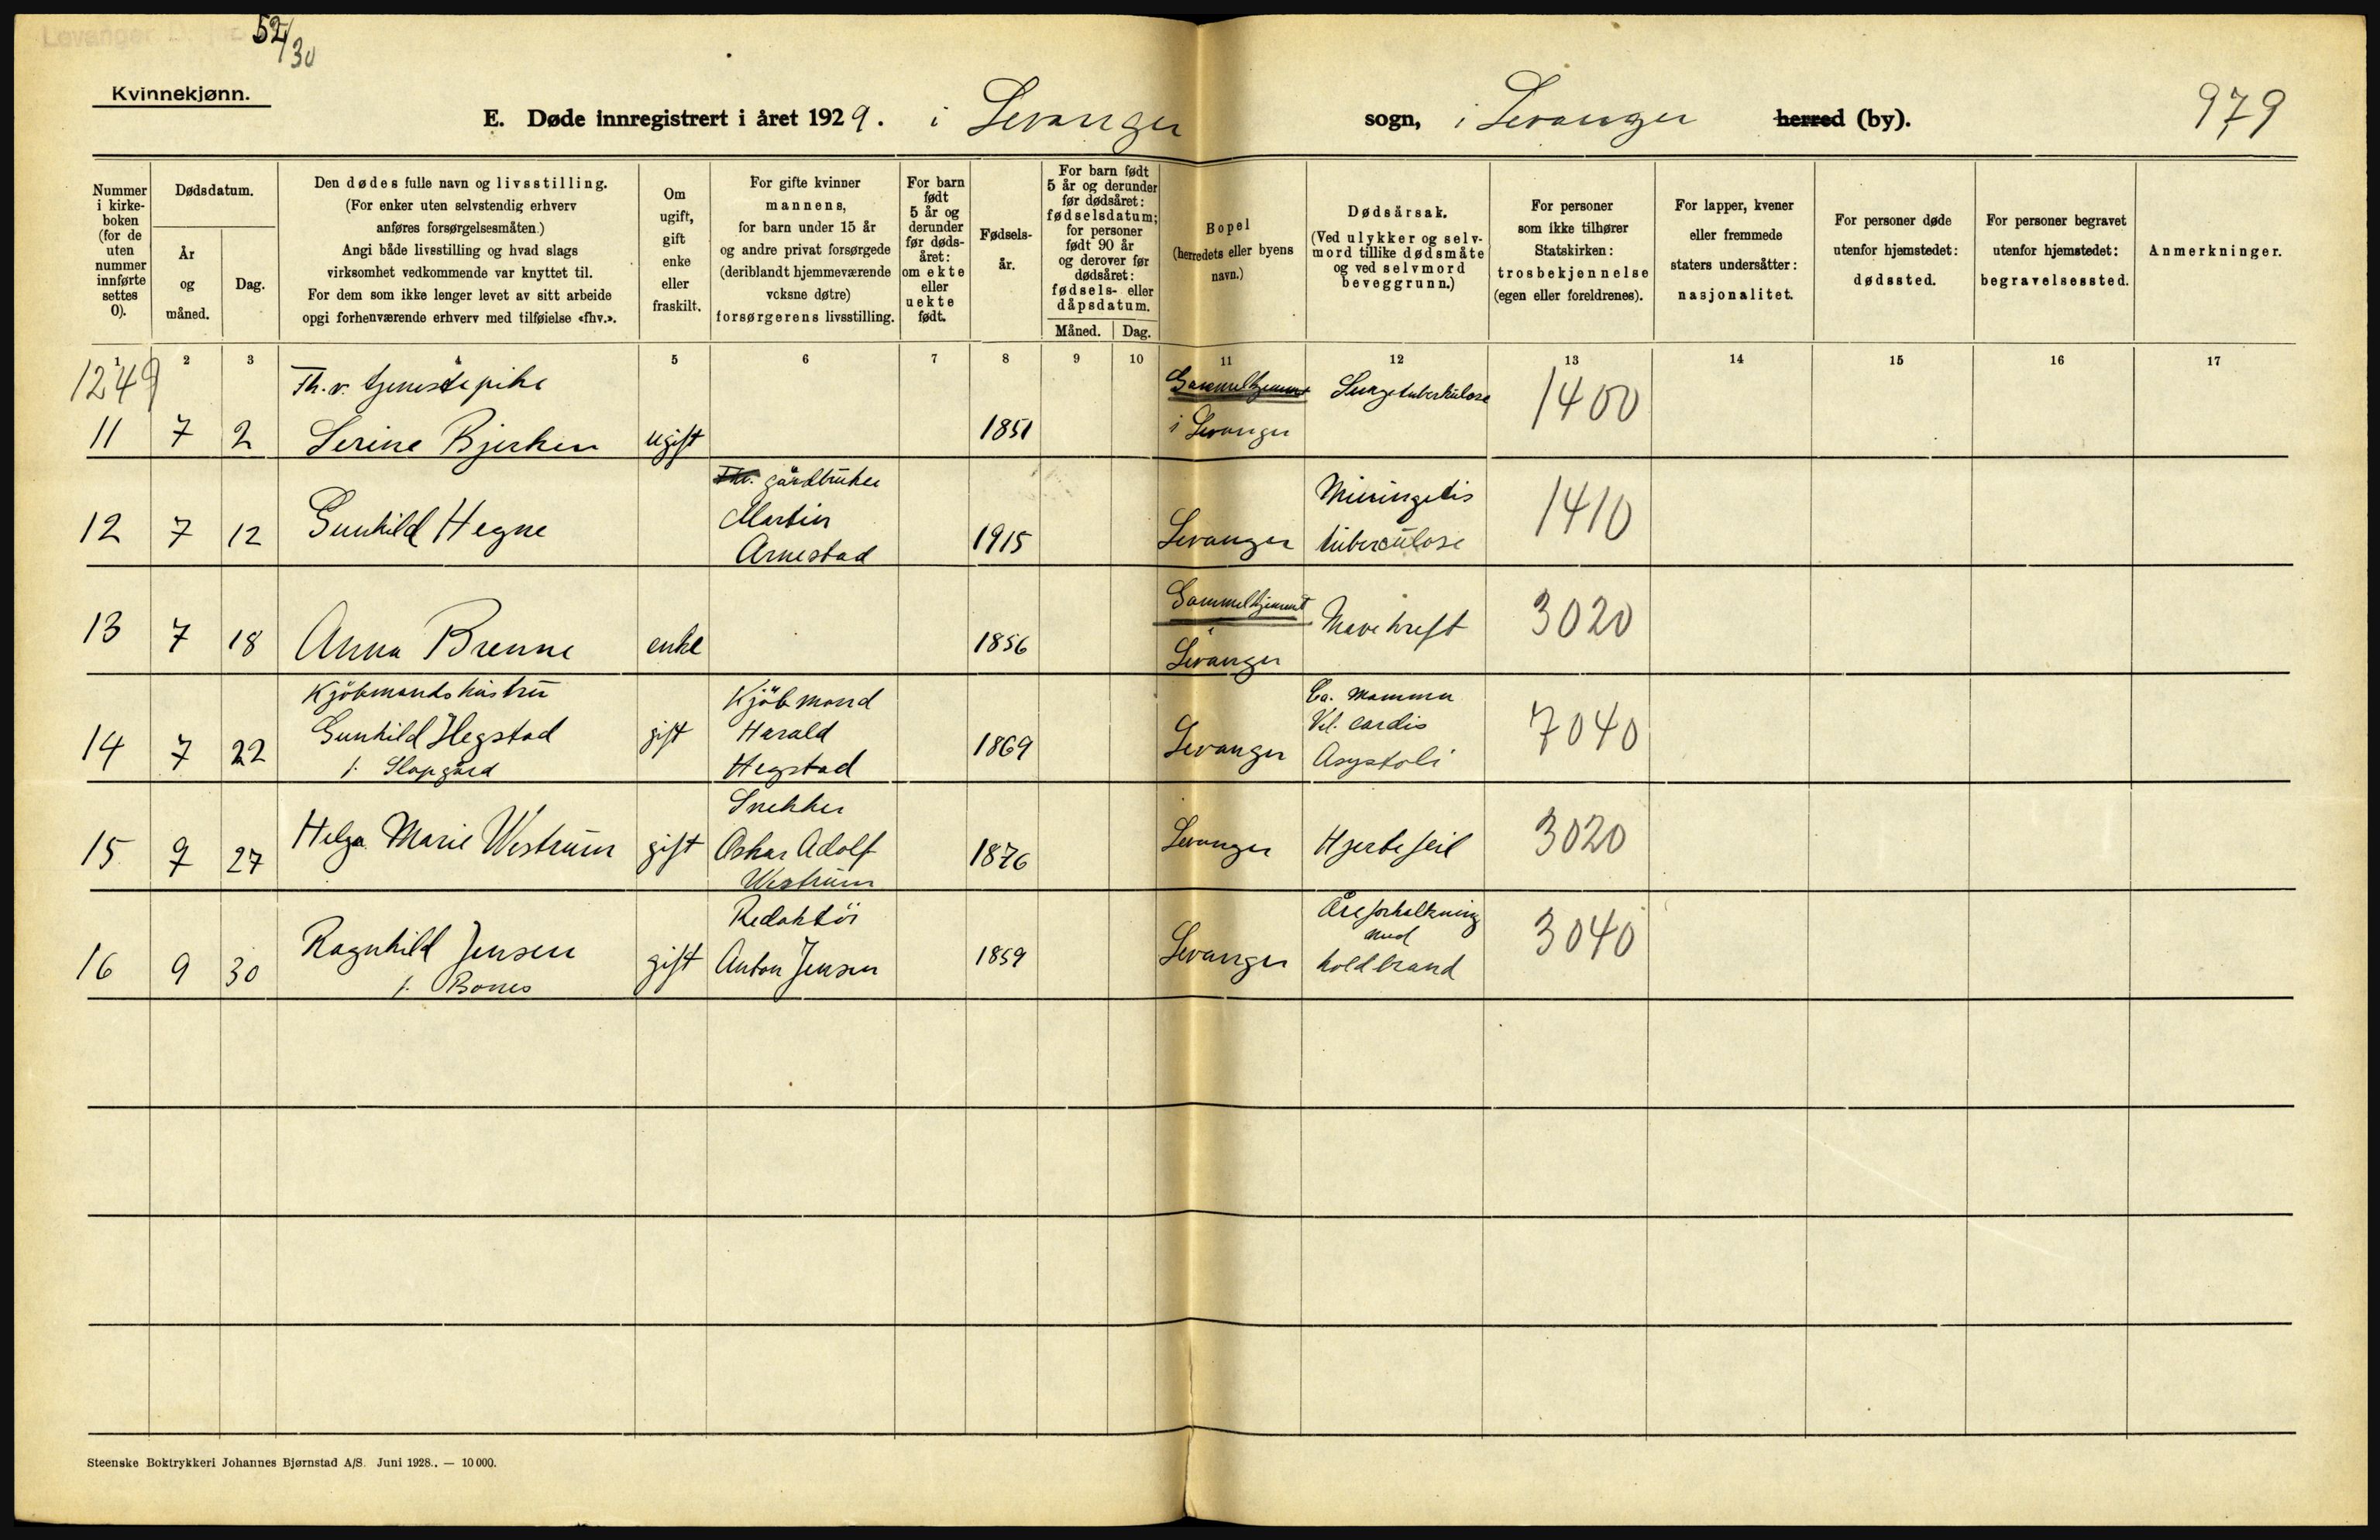 Levanger
52/30
Kvinnekjønn.
E. Døde innregistrert i året 1929. i Levanger sogn, i Levanger herred (by).
979
Nummer i kirke-boken (for de uten nummer innførte settes 0).
Dødsdatum.
År og måned.
Dag.
Den dødes fulle navn og livsstilling.
(For enker uten selvstendig erhverv
anføres forsørgelsesmåten.)
Angi både livsstilling og hvad slags
virksomhet vedkommende var knyttet til.
For dem som ikke lenger levet av sitt arbeide
opgi forhenværende erhverv med tilføielse «fhv.».
Om ugift, gift enke eller fraskilt.
For gifte kvinner
mannens,
for barn under 15 år
og andre privat forsørgede
(deriblandt hjemmeværende
voksne døtre)
forsørgerens livsstilling.
For barn født 5 år og derunder før døds-året: om ekte eller uekte født.
Fødsels-år.
For barn født
5 år og derunder
før dødsåret:
fødselsdatum;
for personer
født 90 år
og derover før
dødsåret:
fødsels- eller
dåpsdatum.
Måned.
Dag.
Bopel
(herredets eller byens
navn.)
Dødsårsak.
(Ved ulykker og selv-
mord tillike dødsmåte
og ved selvmord
beveggrunn.)
For personer
som ikke tilhører
Statskirken:
trosbekjennelse
(egen eller foreldrenes).
For lapper, kvener
eller fremmede
staters undersåtter:
nasjonalitet.
For personer døde
utenfor hjemstedet:
dødssted.
For personer begravet
utenfor hjemstedet:
begravelsessted.
Anmerkninger.
1 2 3 4 5 6 7 8 9 10 11 12 13 14 15 16 17
1249
Fh. v. tjenestepike
Gammelhjemmet Lungetuberkulose 1400
11 7 2 Serine Bjerken ugift 1851 i Levanger
Fhv. gårdbruker
12 7 12 Gunhild Hegne Martin Arnestad 1915 Levanger Miningitis tuberculose 1410
Gammelhjemmet
13 7 18 Anna Brenne enke 1856 i Levanger Mavekreft 3020
Kjöbmandshustru Kjöbmand Ca. mamma
14 7 22 Gunhild Hegstad gift Harald 1869 Levanger Vit. cordis 7040
f. Slapgård Hegstad Asystoli
Snekker
15 9 27 Helga Marie Westrum gift Oskar Adolf 1876 Levanger Hjertefeil 3020
Westrum
Redaktör Åreforkalkning
16 9 30 Ragnhild Jensen gift Anton Jensen 1859 Levanger med 3040
f. Bones koldbrand
Steenske Boktrykkeri Johannes Bjørnstad A/S. Juni 1928. — 10 000.